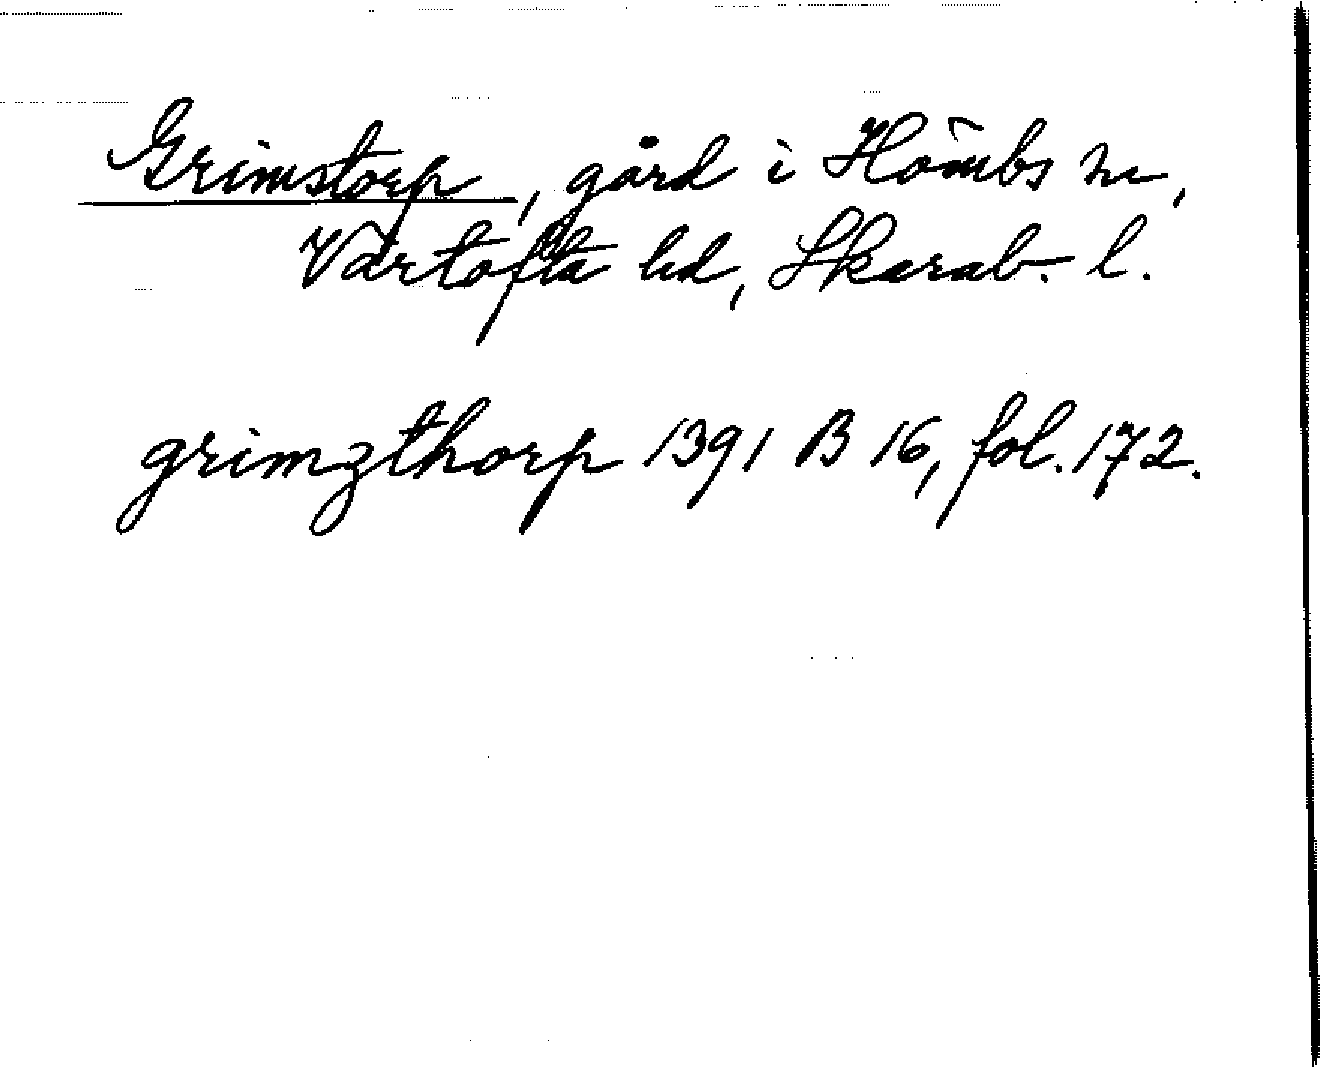 Grimstorp, gård i Hömbs sn,
Vartofta hd, Skarab. l.
grimzthorp 1391 B 16, fol. 172.